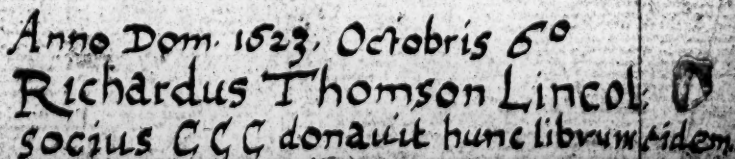 Anno Dom. 1623. Octobris 6º
Richardus Thomson Lincol:
socius C C C donauit hunc librum eidem.